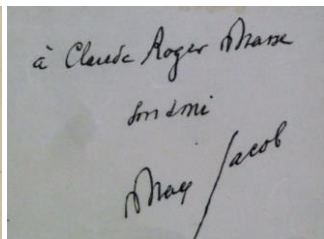 à Claude Roger Marx
son ami
Max Jacob